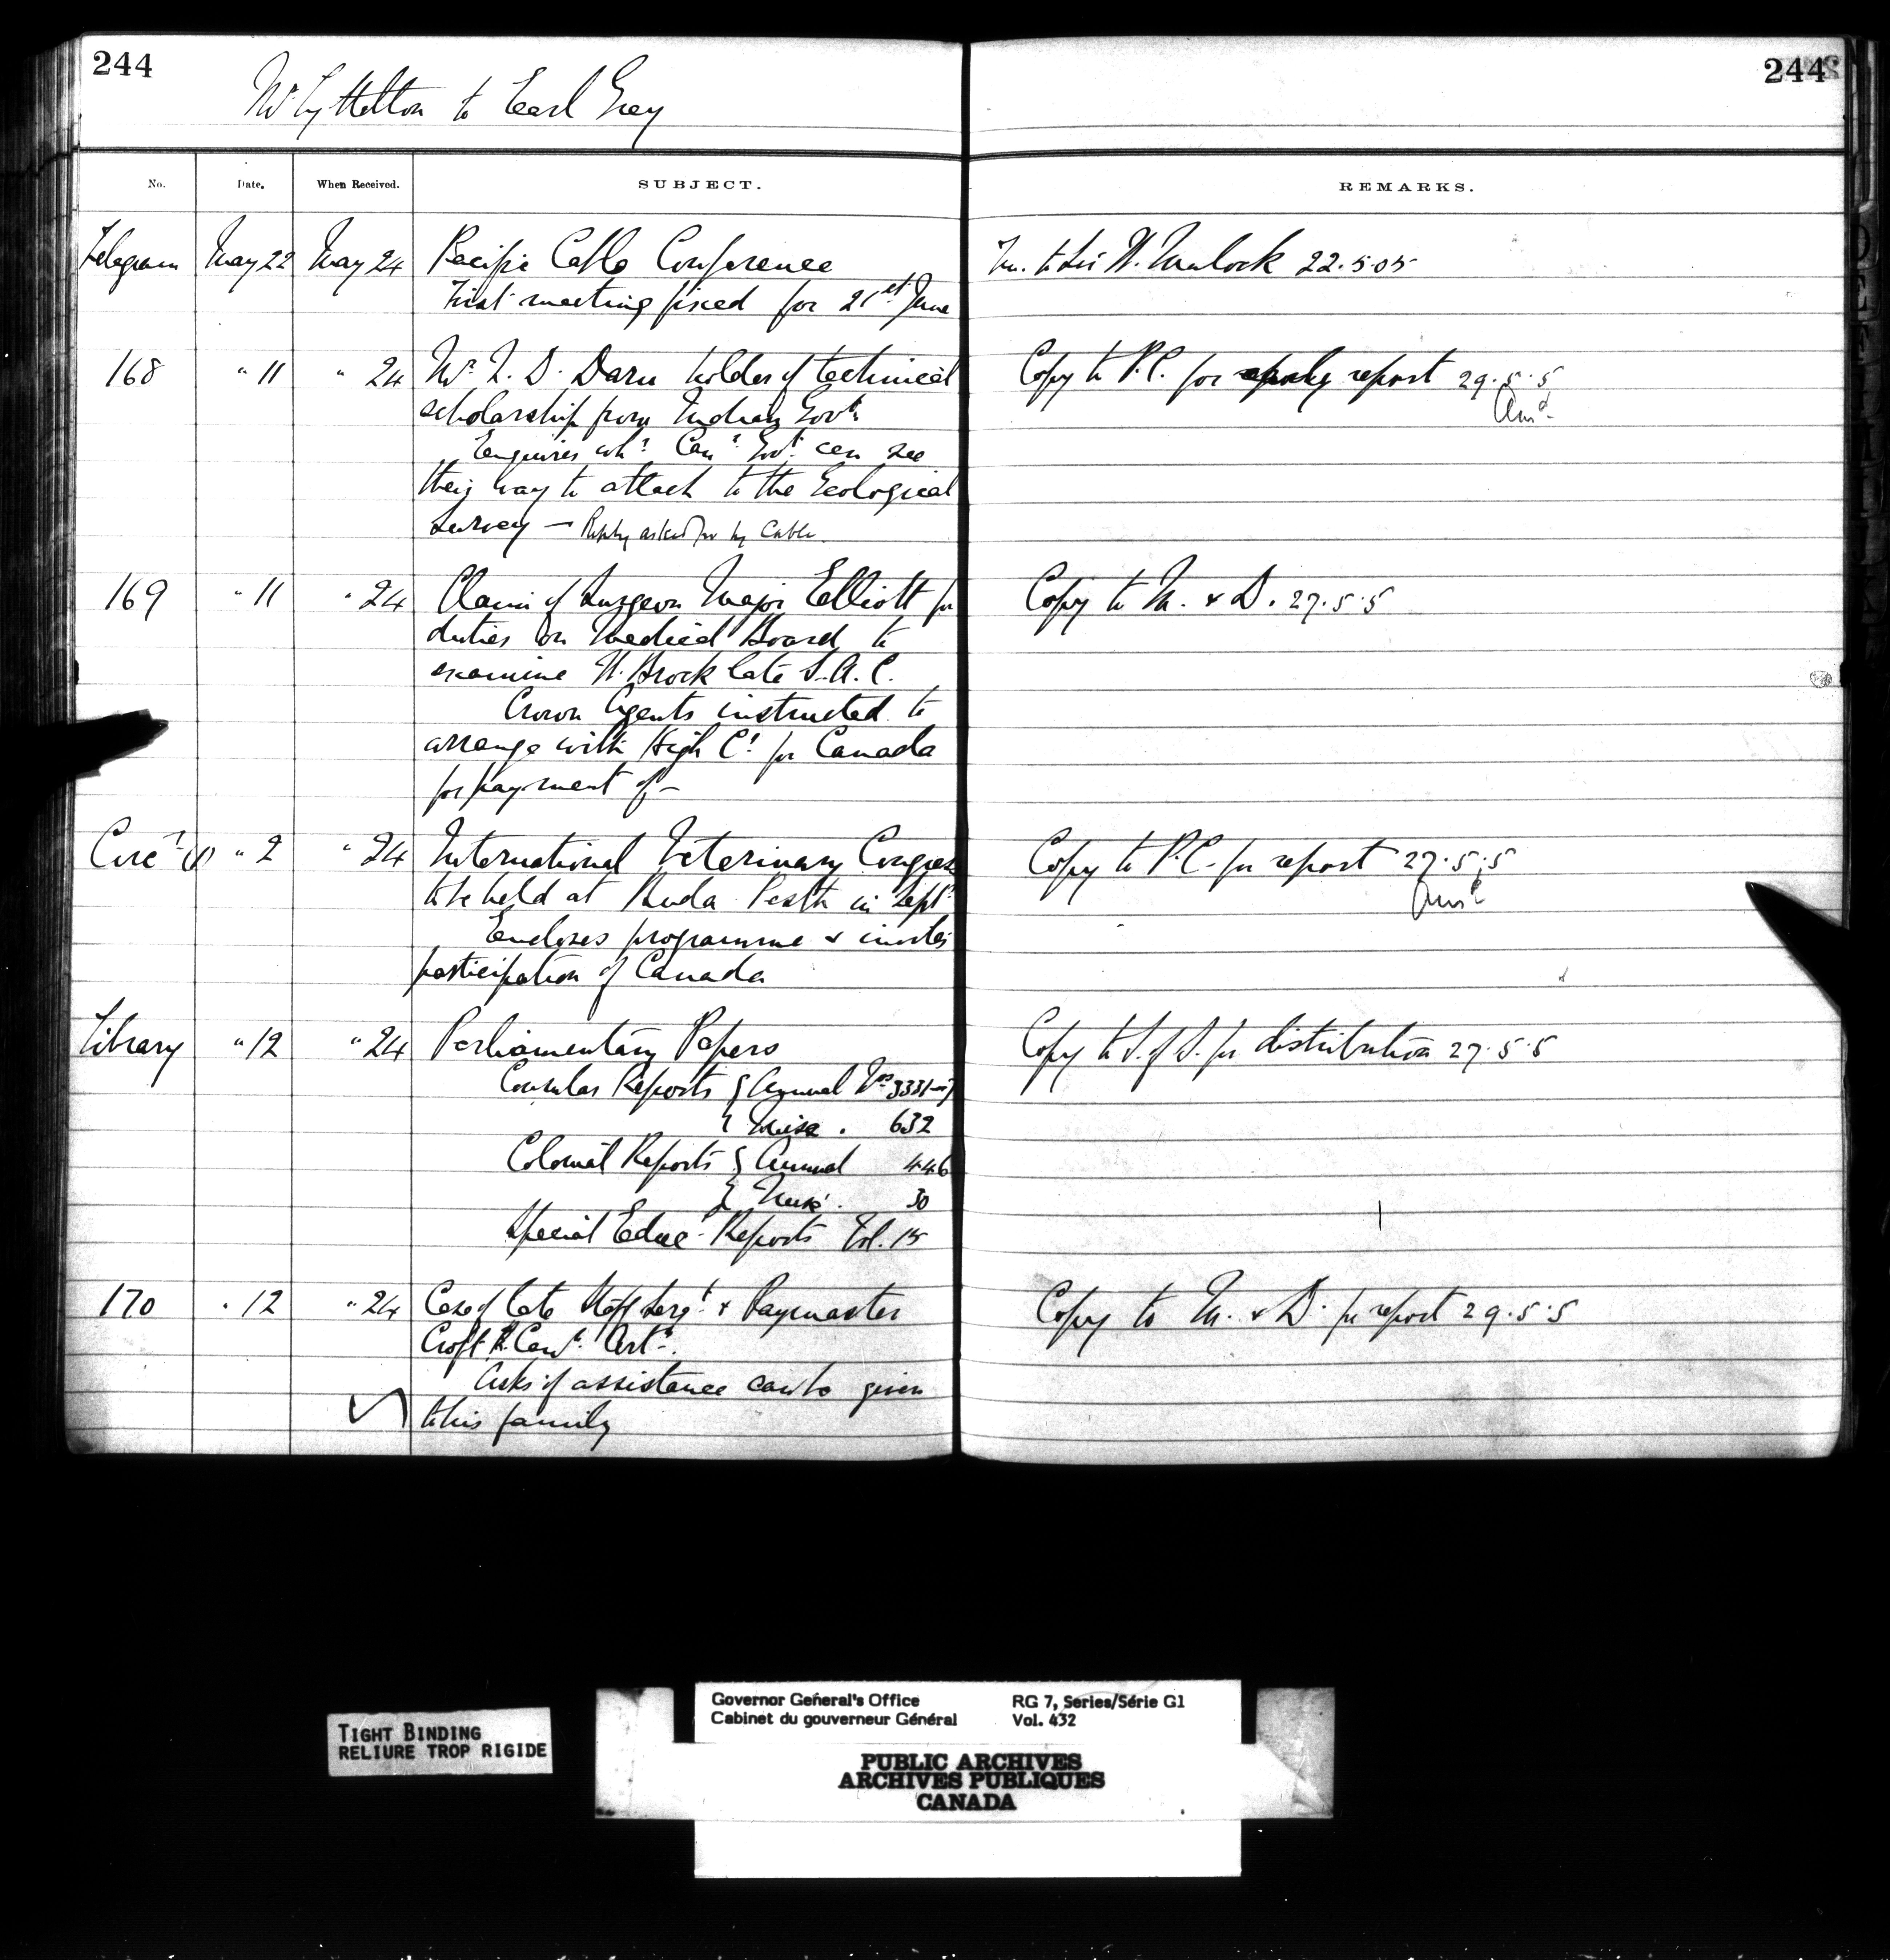 244
244
Mr Lyttelton to Earl Grey
No.
Date.
When Received.
SUBJECT.
REMARKS.
Telegram May 22 May 24 Pacific Cable Conference
First meeting fixed for 21st June
Tm. to Sir W. Mulock 22.5.05
168 " 11 " 24 Mr. N. D. Daru holder of technical
scholarship from Indian Govt.
Enquires whr. Can. Govt. can see
their way to attach to the Geological
Survey — Reply asked for by Cable.
Copy to P.C. for report 29.5.5
Ansd.
169 " 11 " 24 Claim of Surgeon Major Elliott for
duties on Medical Board to
examine W. Brock late S.A.C.
Crown Agents instructed to
arrange with High Cr. for Canada
for payment of —
Copy to M. & D. 27.5.5
Circr. (1) " 2 " 24 International Veterinary Congress
to be held at Buda Pesth in Septr.
Encloses programme & invites
participation of Canada
Copy to P.C. for report 27.5.5
Ansd
Library " 12 " 24 Parliamentary Papers
Consular Reports { Annual Nos 3331-
{ Misc. 632
Colonial Reports { Annual 446
{ Misc. 30
Special Educl. Reports Vol. 15
Copy to S. of S. for distribution 27.5.5
170 " 12 " 24 Case of late Staff Sergt. & Paymaster
Croft R. Cann. Arty.
Asks if assistance can be given
to his family
Copy to M. & D. for report 29.5.5
TIGHT BINDING
RELIURE TROP RIGIDE
Governor General's Office
Cabinet du gouverneur Général
RG 7, Series/Série G1
Vol. 432
PUBLIC ARCHIVES
ARCHIVES PUBLIQUES
CANADA